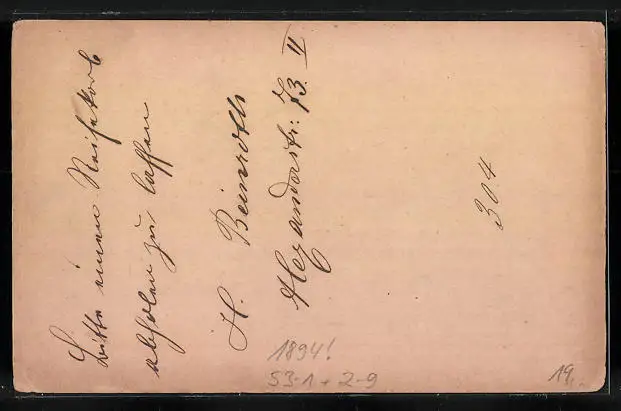 Bitte einen Reisekorb
abholen zu lassen
H. Beinroth
Alexanderstr: 73. II
304
1894!
S3-1 + 2-9
19.